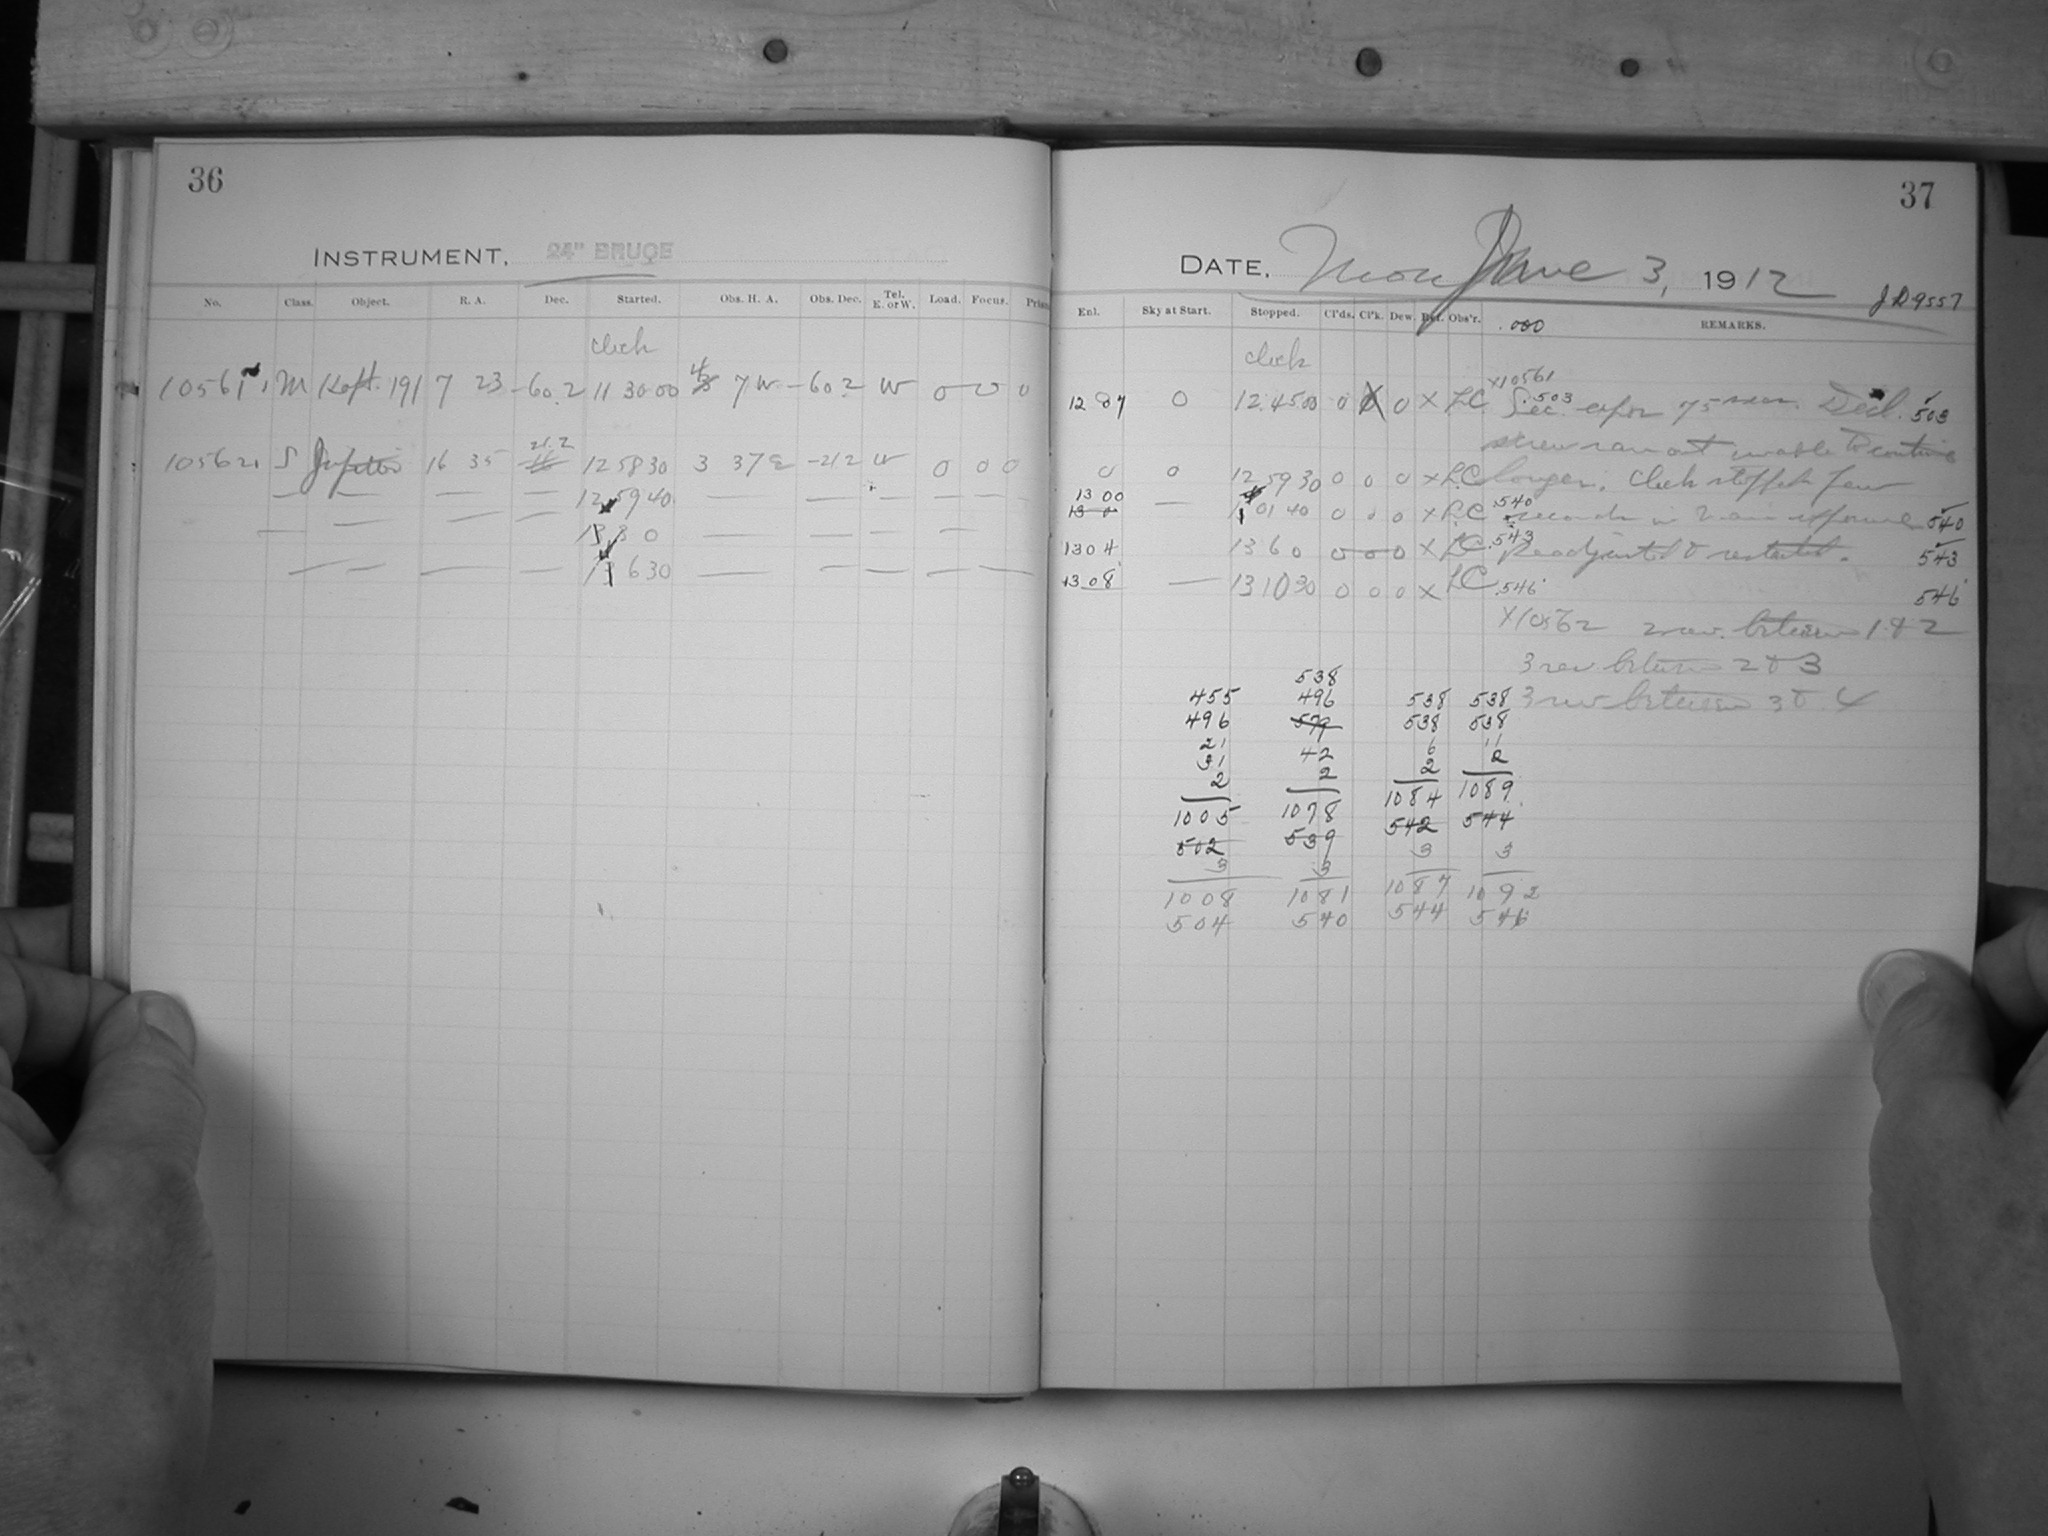 36
INSTRUMENT. 24" BRUCE
No. Class. Object. R. A. Dec. Started. Obs. H. A. Obs. Dec. Tel. E. or W. Load. Focus.
clock
10561 M Kapt. 191 7 23 -60.2 11 30 00 7 W -60.2 W 0 0 0
21.2
10562 S Jupiter 16 35 12 58 30 3 37 E -21 2 W 0 0 0
— — — — 12 59 40 — — — — —
— — — — 13 3 0 — — — —
— — — — 13 6 30 — — — — —
37
DATE, Mon June 3, 1912
J D 9557
Enl. Sky at Start. Stopped. Cl'ds. Cl'k. Dew. Ref. Obs'r. .000 REMARKS.
clock
X10561
.503
12 07 0 12 45 00 0 X 0 X LC Sec. expos 75 min. Decl. 503
screw ran out unable to continue
0 0 12 59 30 0 0 0 X LC longer. Clock stopped few
13 00
13 0 — 13 01 40 0 0 0 X LC .540 seconds in exposure 540
1304 13 6 0 0 0 0 X LC .543 Readjusted & restarted. 543
1308 — 13 10 30 0 0 0 X LC .546 546
X10562 2 rev. between 1 & 2
3 rev between 2 & 3
3 rev between 3 & 4
538
455 496 538 538
496 579 538 538
21 42 6 11
31 2 2 2
2
1005 1078 1084 1089
502 539 542 544
3 3 3 3
1008 1081 1087 1092
504 540 544 546